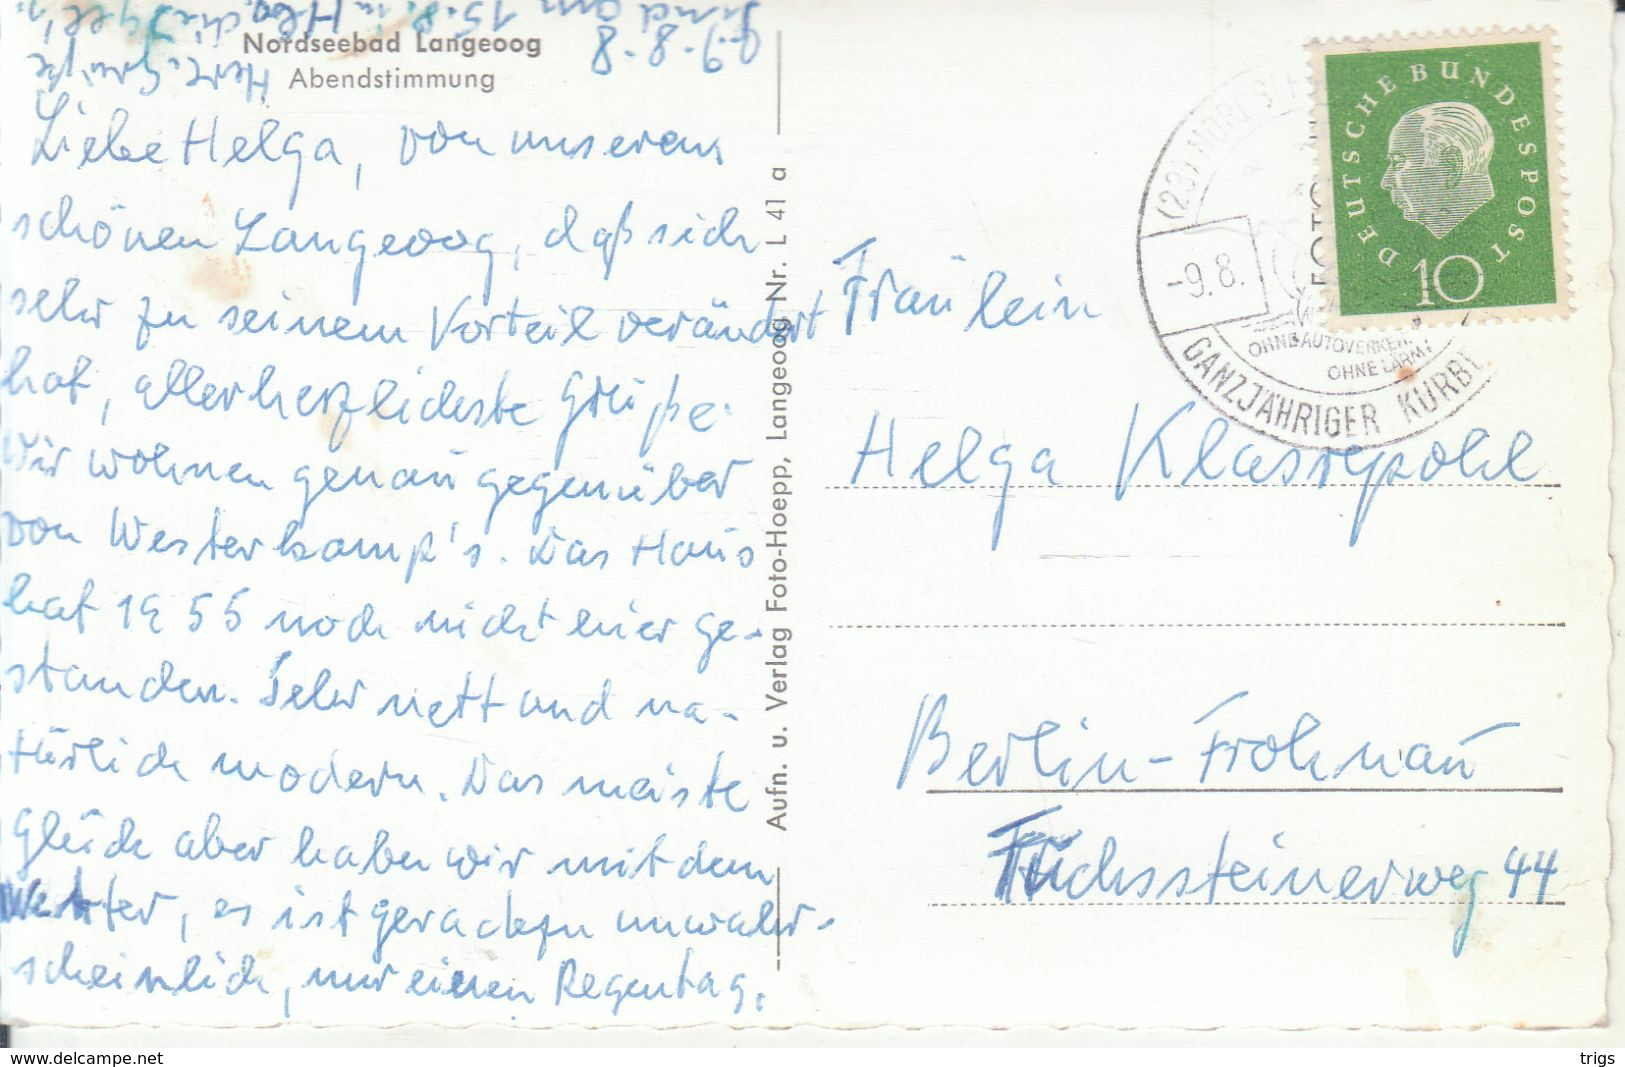 Nordseebad Langeoog
Abendstimmung
Liebe Helga, von unserem
schönen Langeoog, daß sich
sehr zu seinem Vorteil verändert
hat, allerherzlichste Grüße.
Wir wohnen genau gegenüber
von Westerkamp's. Das Haus
hat 1955 noch nicht hier ge-
standen. Sehr nett und na-
türlich modern. Das meiste
Glück aber haben wir mit dem
Wetter, es ist geradezu unwahr-
scheinlich, nur einen Regentag.
9.-8.-8
sind am 15.8. in
Herzl. Grüße
Aufn. u. Verlag Foto-Hoepp, Langeoog Nr. L 41 a
DEUTSCHE BUNDESPOST
10
-9.8.
OHNE AUTOVERKEHR
OHNE LÄRM
GANZJÄHRIGER KURB
Fräulein
Helga Klassepohl
Berlin-Frohnau
Fuchssteinerweg 44
delcampe.net
trigs